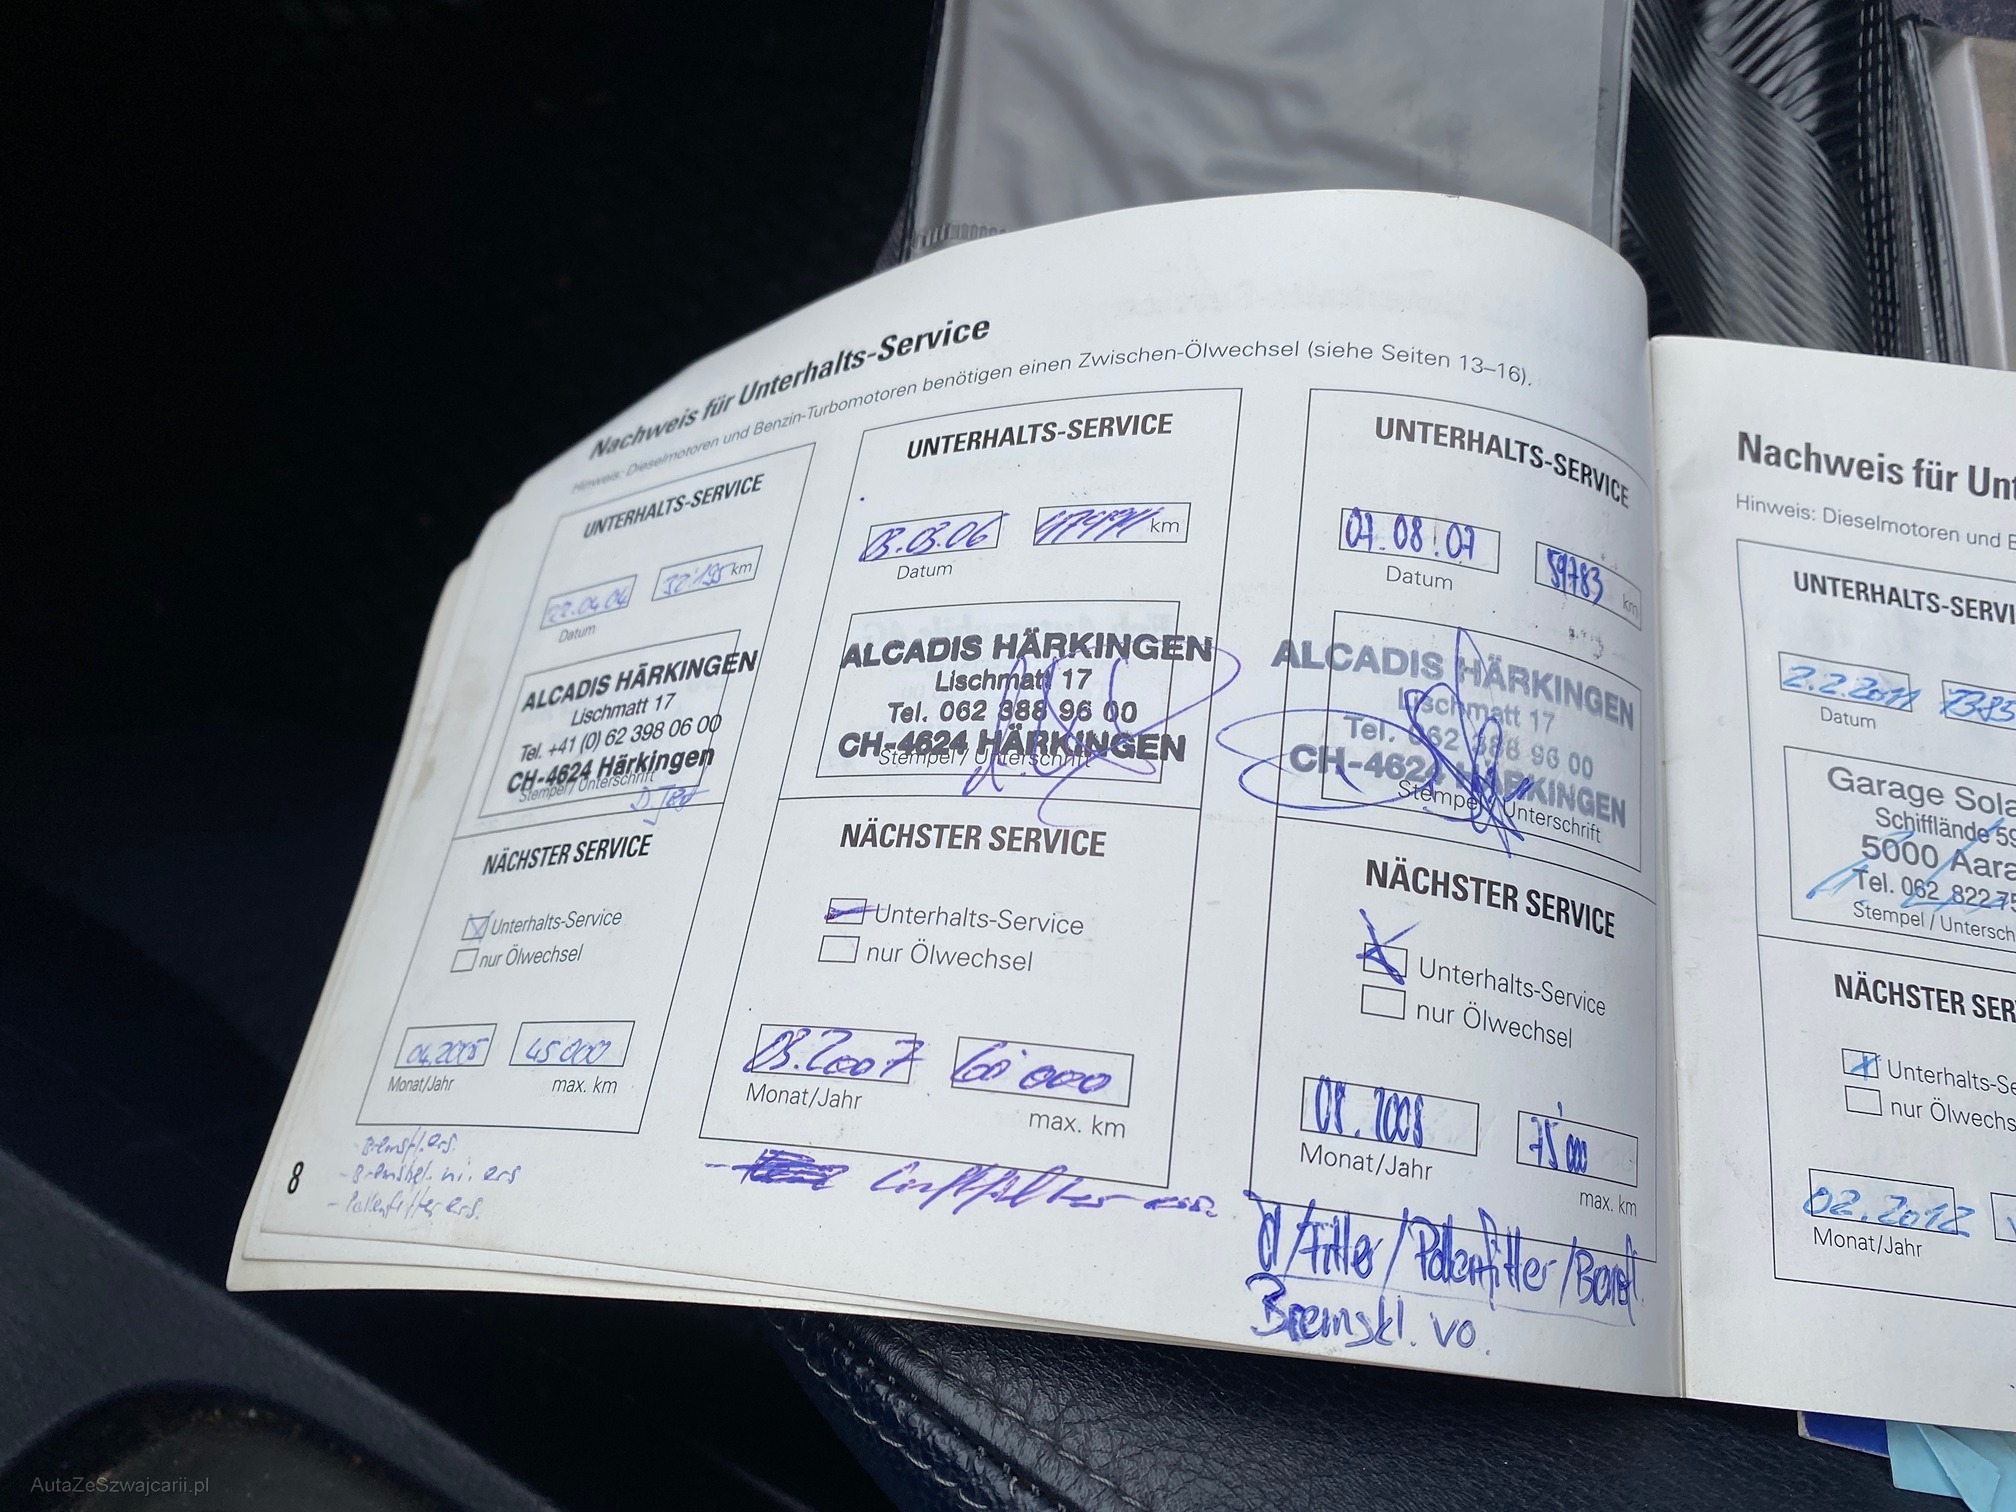 Nachweis für Unterhalts-Service
Hinweis: Dieselmotoren und Benzin-Turbomotoren benötigen einen Zwischen-Ölwechsel (siehe Seiten 13–16).
UNTERHALTS-SERVICE
22.04.04 32'195 km
Datum
ALCADIS HÄRKINGEN
Lischmatt 17
Tel. +41 (0) 62 398 06 00
CH-4624 Härkingen
Stempel / Unterschrift
NÄCHSTER SERVICE
Unterhalts-Service
nur Ölwechsel
04.2005 45 000
Monat/Jahr max. km
- Bremsfl. ers.
- Bremsbel. hi. ers
- Pollenfilter ers.
8
UNTERHALTS-SERVICE
03.03.06 km
Datum
ALCADIS HÄRKINGEN
Lischmatt 17
Tel. 062 388 96 00
CH-4624 HÄRKINGEN
Stempel / Unterschrift
NÄCHSTER SERVICE
Unterhalts-Service
nur Ölwechsel
03.2007 60'000
Monat/Jahr
max. km
Luftfilter ers.
UNTERHALTS-SERVICE
07.08.07 59783 km
Datum
ALCADIS HÄRKINGEN
Lischmatt 17
Tel. 062 388 96 00
CH-4624 HÄRKINGEN
Stempel / Unterschrift
NÄCHSTER SERVICE
Unterhalts-Service
nur Ölwechsel
08.2008 75'000
Monat/Jahr
max. km
Öl/Filter/Pollenfilter/
Bremskl. vo.
Nachweis für Unt
Hinweis: Dieselmotoren und B
UNTERHALTS-SERVI
2.2.2011 7383
Datum
Garage Sola
Schifflände 59
5000 Aara
Tel. 062 822 75
Stempel / Untersch
NÄCHSTER SER
Unterhalts-Se
nur Ölwechs
02.2012
Monat/Jahr
AutaZeSzwajcarii.pl